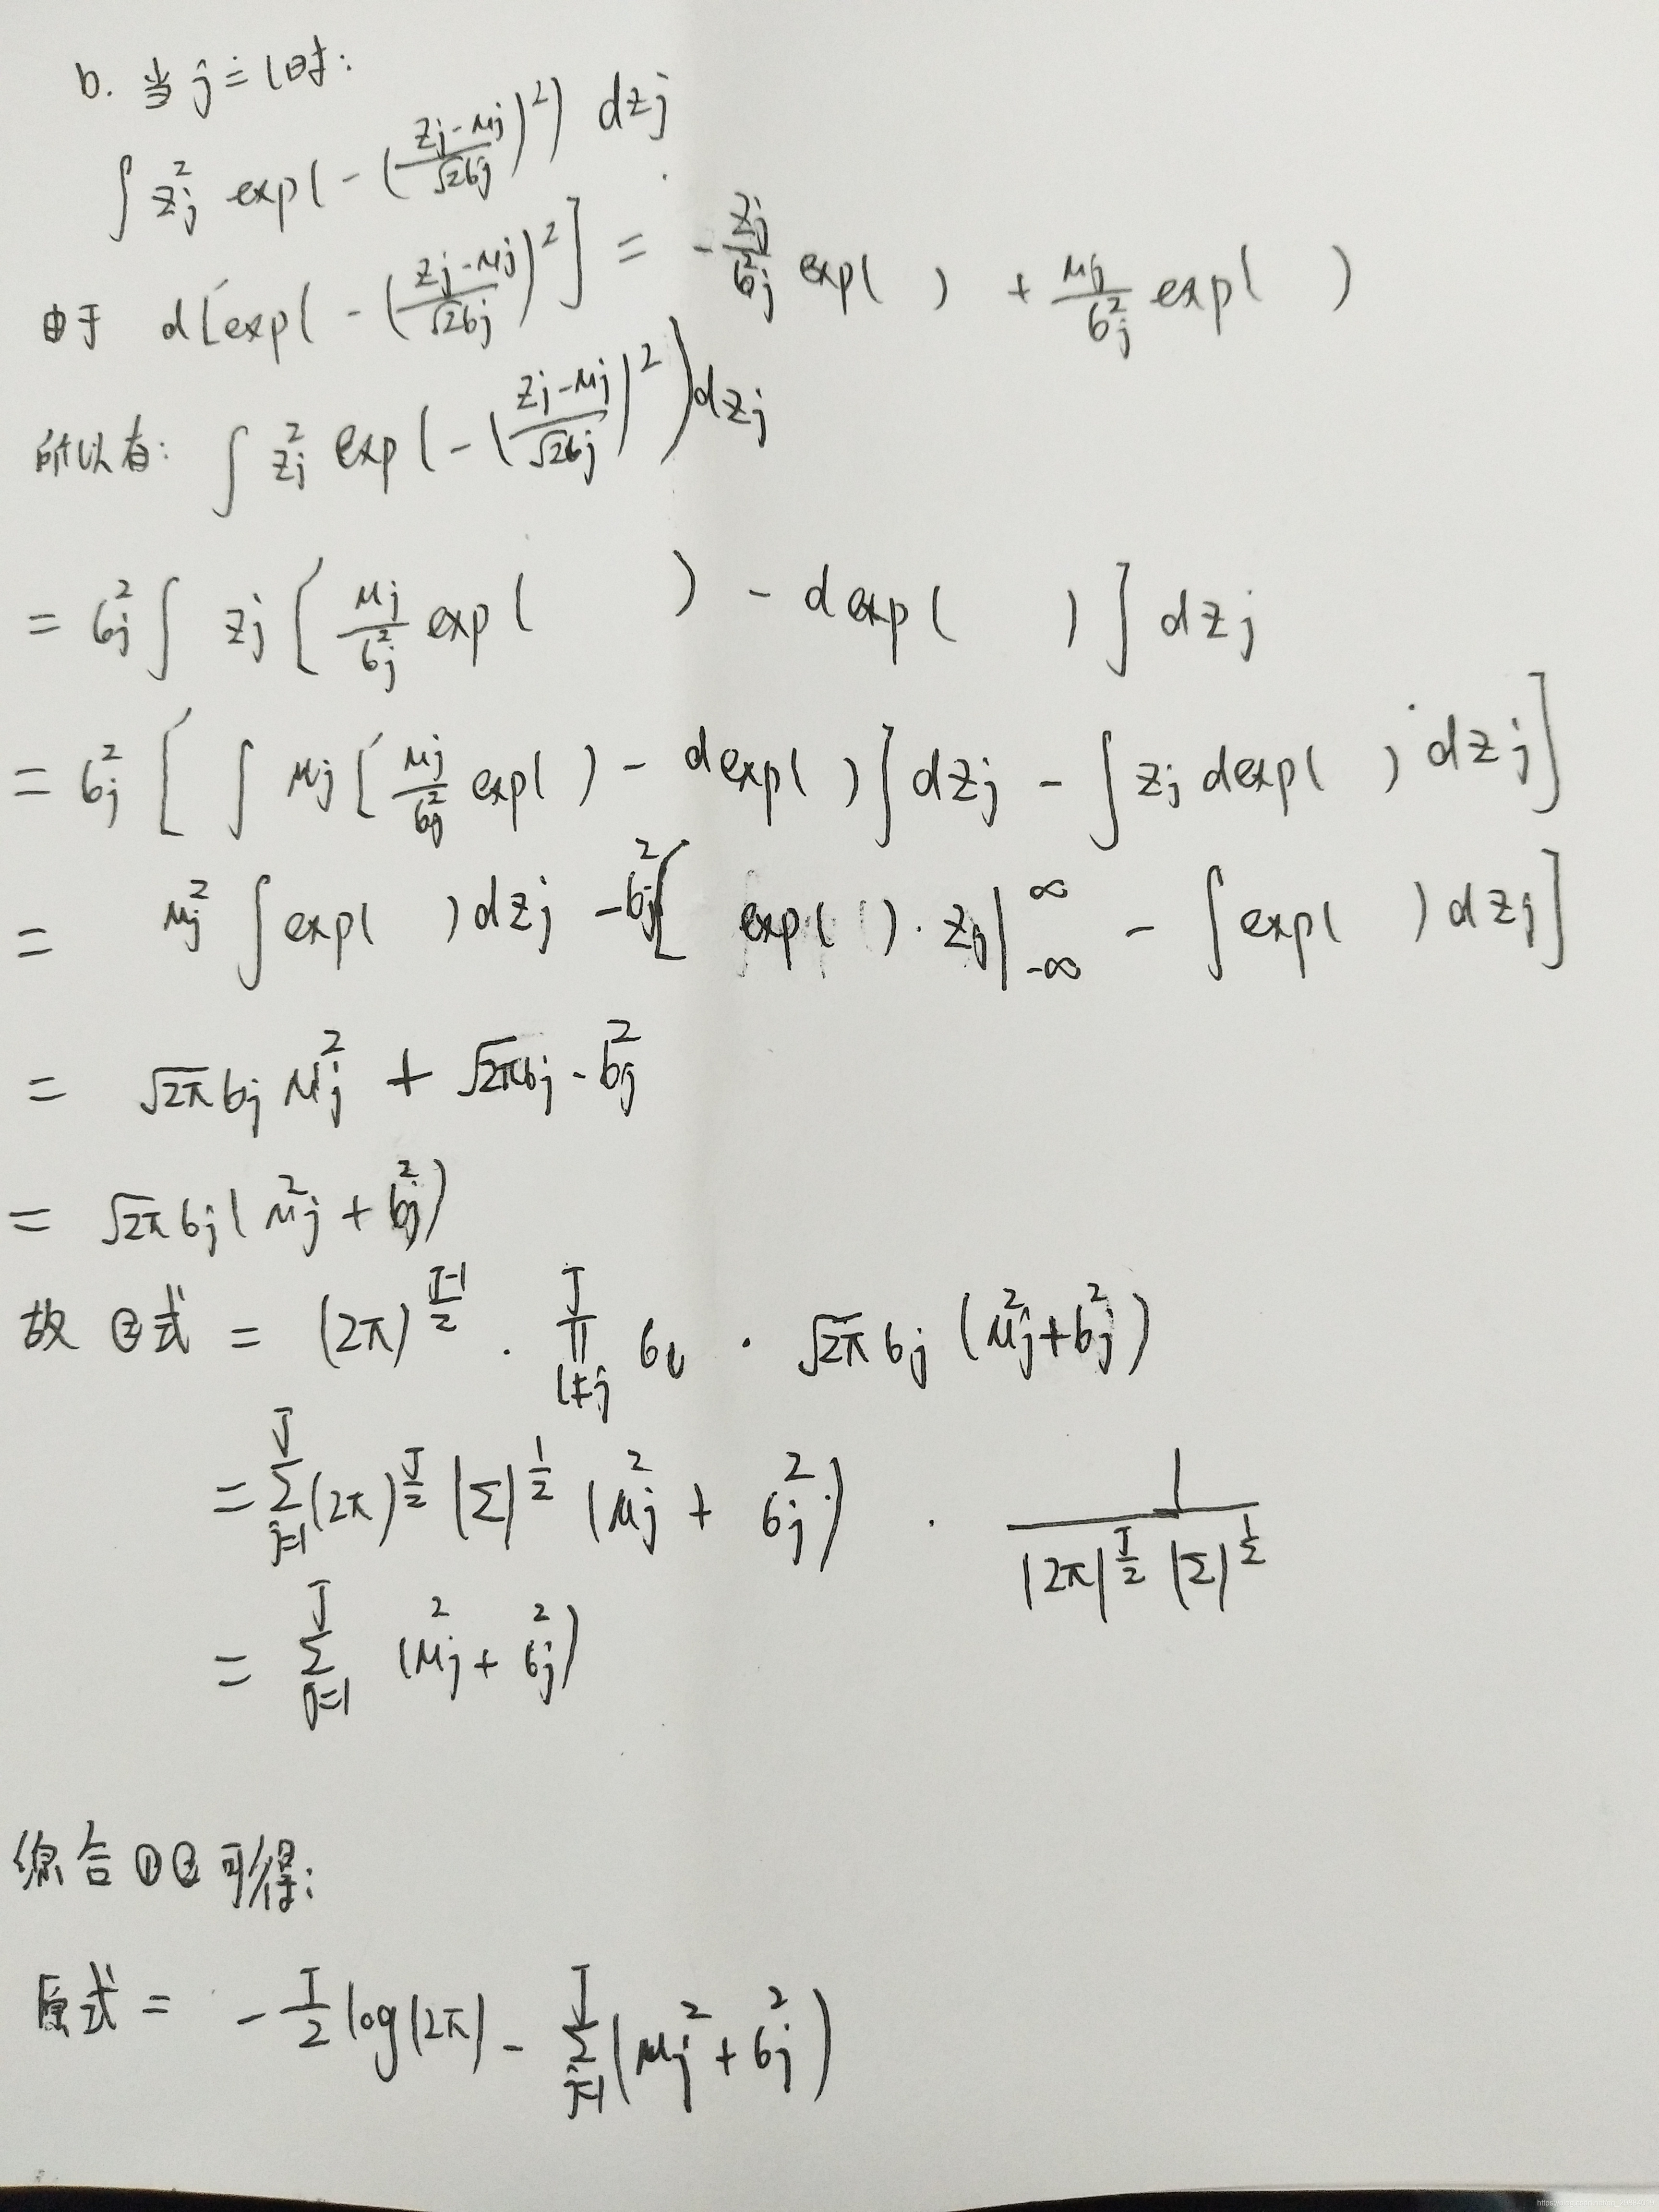 b. 当 j = l 时:
∫ z_j^2 exp(-((z_j-μ_j)/(√2σ_j))^2) dz_j
由于 d[exp(-((z_j-μ_j)/(√2σ_j))^2] = -z_j/σ_j^2 exp( ) + μ_j/σ_j^2 exp( )
所以有: ∫ z_j^2 exp(-((z_j-μ_j)/(√2σ_j))^2) dz_j
= σ_j^2 ∫ z_j [μ_j/σ_j^2 exp( ) - d exp( )] dz_j
= σ_j^2 [∫ μ_j [μ_j/σ_j^2 exp( ) - d exp( )] dz_j - ∫ z_j d exp( ) dz_j]
= μ_j^2 ∫ exp( ) dz_j - σ_j^2 [exp( ) · z_j |_{-∞}^{∞} - ∫ exp( ) dz_j]
= √2π σ_j μ_j^2 + √2π σ_j · σ_j^2
= √2π σ_j (μ_j^2 + σ_j^2)
故 ②式 = (2π)^{(J-1)/2} · ∏_{l≠j}^{J} σ_l · √2π σ_j (μ_j^2 + σ_j^2)
= ∑_{j=1}^{J} (2π)^{J/2} |Σ|^{1/2} (μ_j^2 + σ_j^2) · 1/(|2π|^{J/2} |Σ|^{1/2})
= ∑_{j=1}^{J} (μ_j^2 + σ_j^2)
综合①②可得:
原式 = -J/2 log(2π) - ∑_{j=1}^{J} (μ_j^2 + σ_j^2)